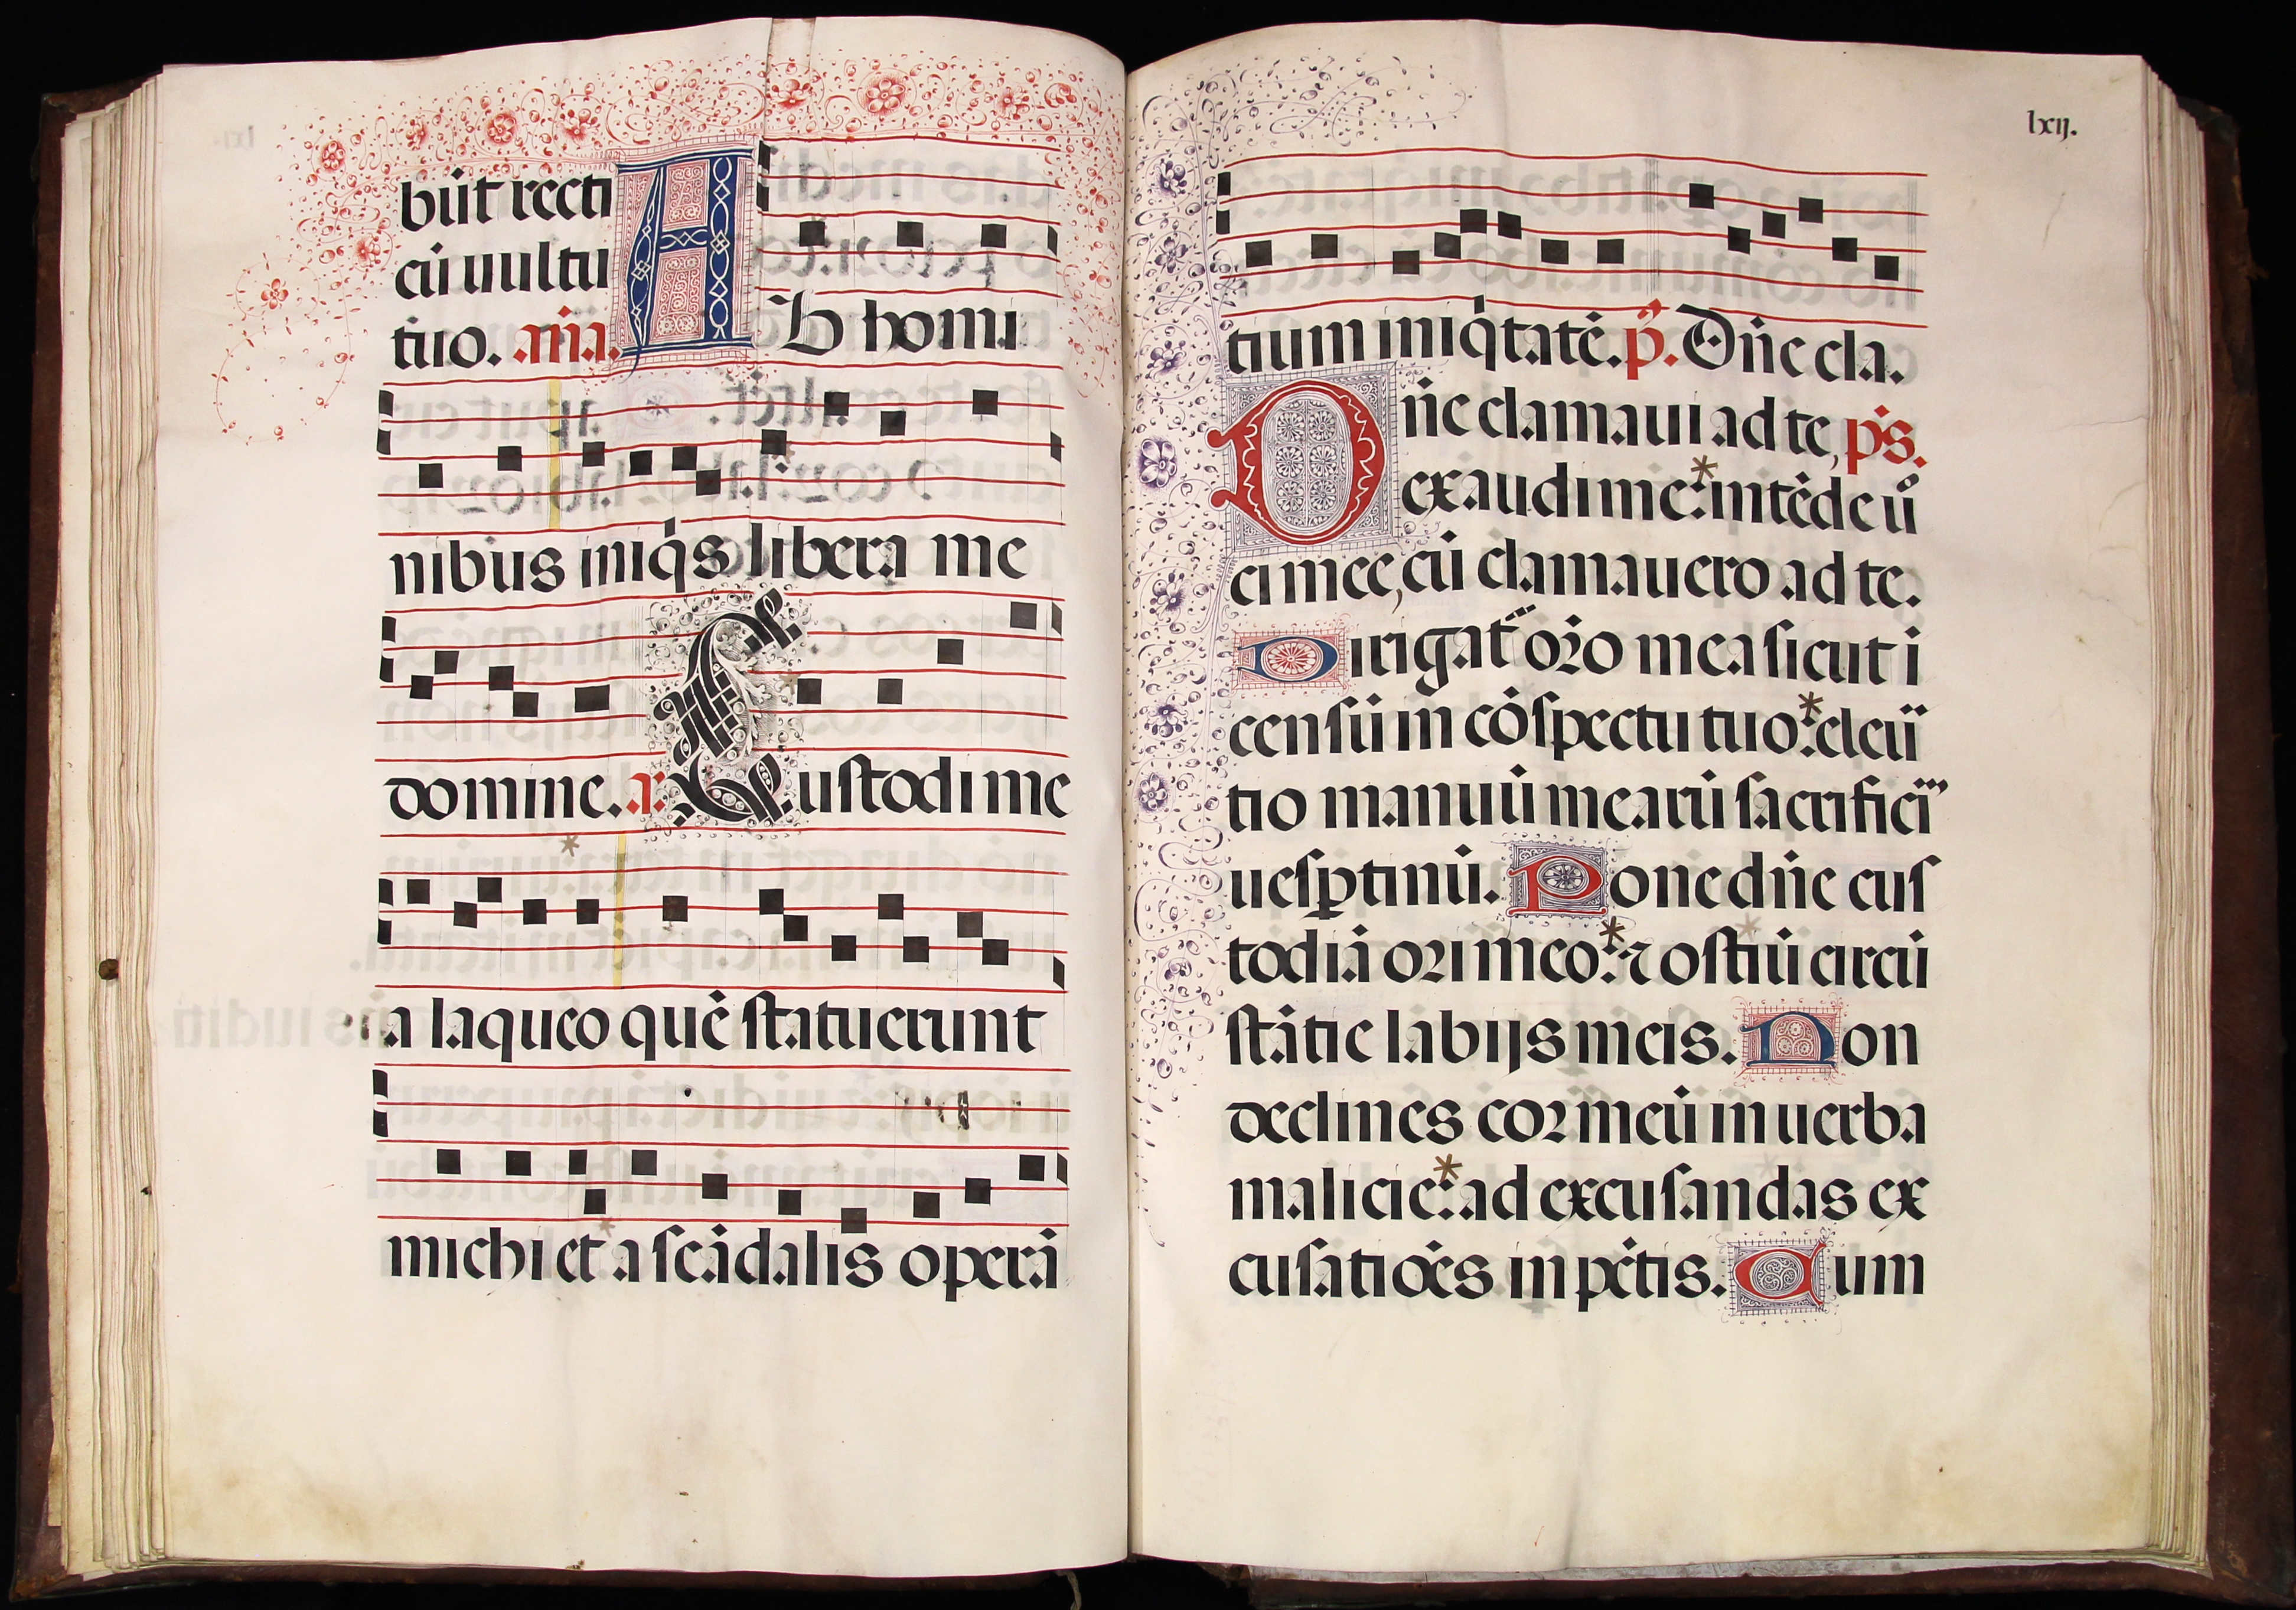 bũt recti
cũ uultu
tuo. añа. A
b homi
nibus iniq̉s libera me
domine. a. Custodi me
a laqueo quẽ statuerunt
michi et a scãdalis operã
lxij.
tium iniq̉tatẽ. p̃. Dñe cla.
Dñe clamaui ad te, p̃s.
exaudi me: * intẽde uͦ
ci mee, cũ clamauero ad te.
Dirigat᷑ or̃o mea sicut i
censũ in cõspectu tuo: * eleũ
tio manuũ mearũ sacrificĩ
uesꝑtinũ. Pone dñe cus
todiã ori meo: * ⁊ ostiũ circũ
stãtie labijs meis. Non
declines cor meũ in uerba
malicie: * ad excusandas ex
cusatiões in pc̃tis. Cum